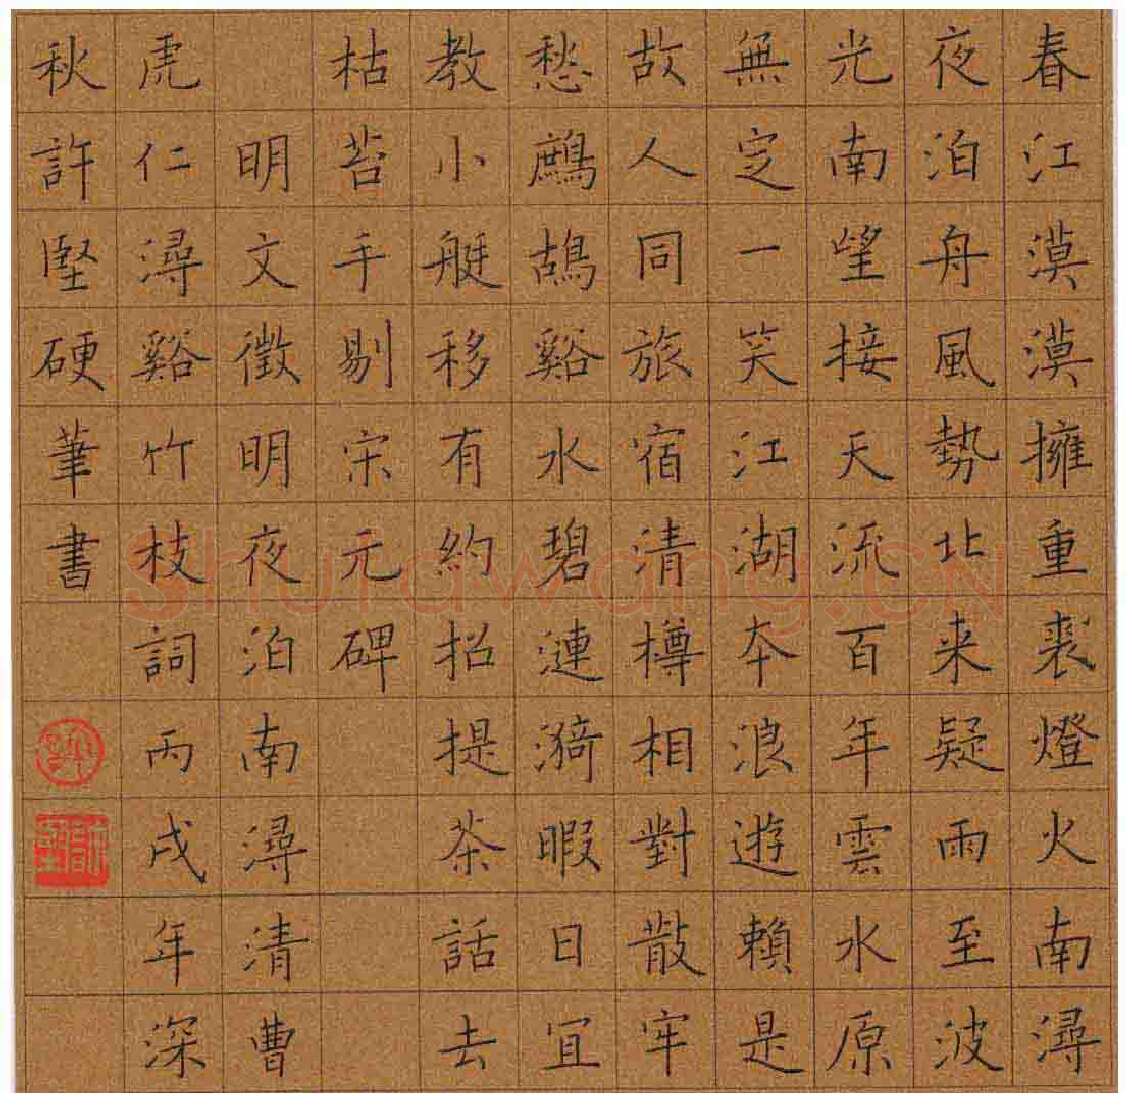 春江漠漠擁重裘燈火南潯
夜泊舟風勢北来疑雨至波
光南望接天流百年雲水原
無定一笑江湖本浪遊賴是
故人同旅宿清樽相對散牢
愁鷓鴣谿水碧漣漪暇日宜
教小艇移有約招提茶話去
枯苔手剔宋元碑
明文徵明夜泊南潯清曹
虎仁潯谿竹枝詞丙戌年深
秋許堅硬筆書
shufawang.CN